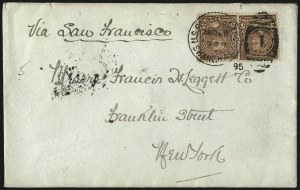 Via San Francisco
Messrs Francis H. Leggett Co
Franklin Street
New York
1
95